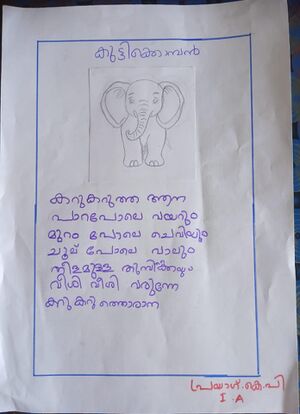 കുട്ടിക്കൊമ്പൻ
കറുകറുത്ത ആന
പാറപോലെ വയറും
മുറം പോലെ ചെവിയും
ചൂല് പോലെ വാലും
നീളമുള്ള തുമ്പിക്കൈയും
വീശി വീശി വരുന്നേ
കറുകറു ത്തൊരാന
പ്രയാഗ്.കെ.പി
I.A